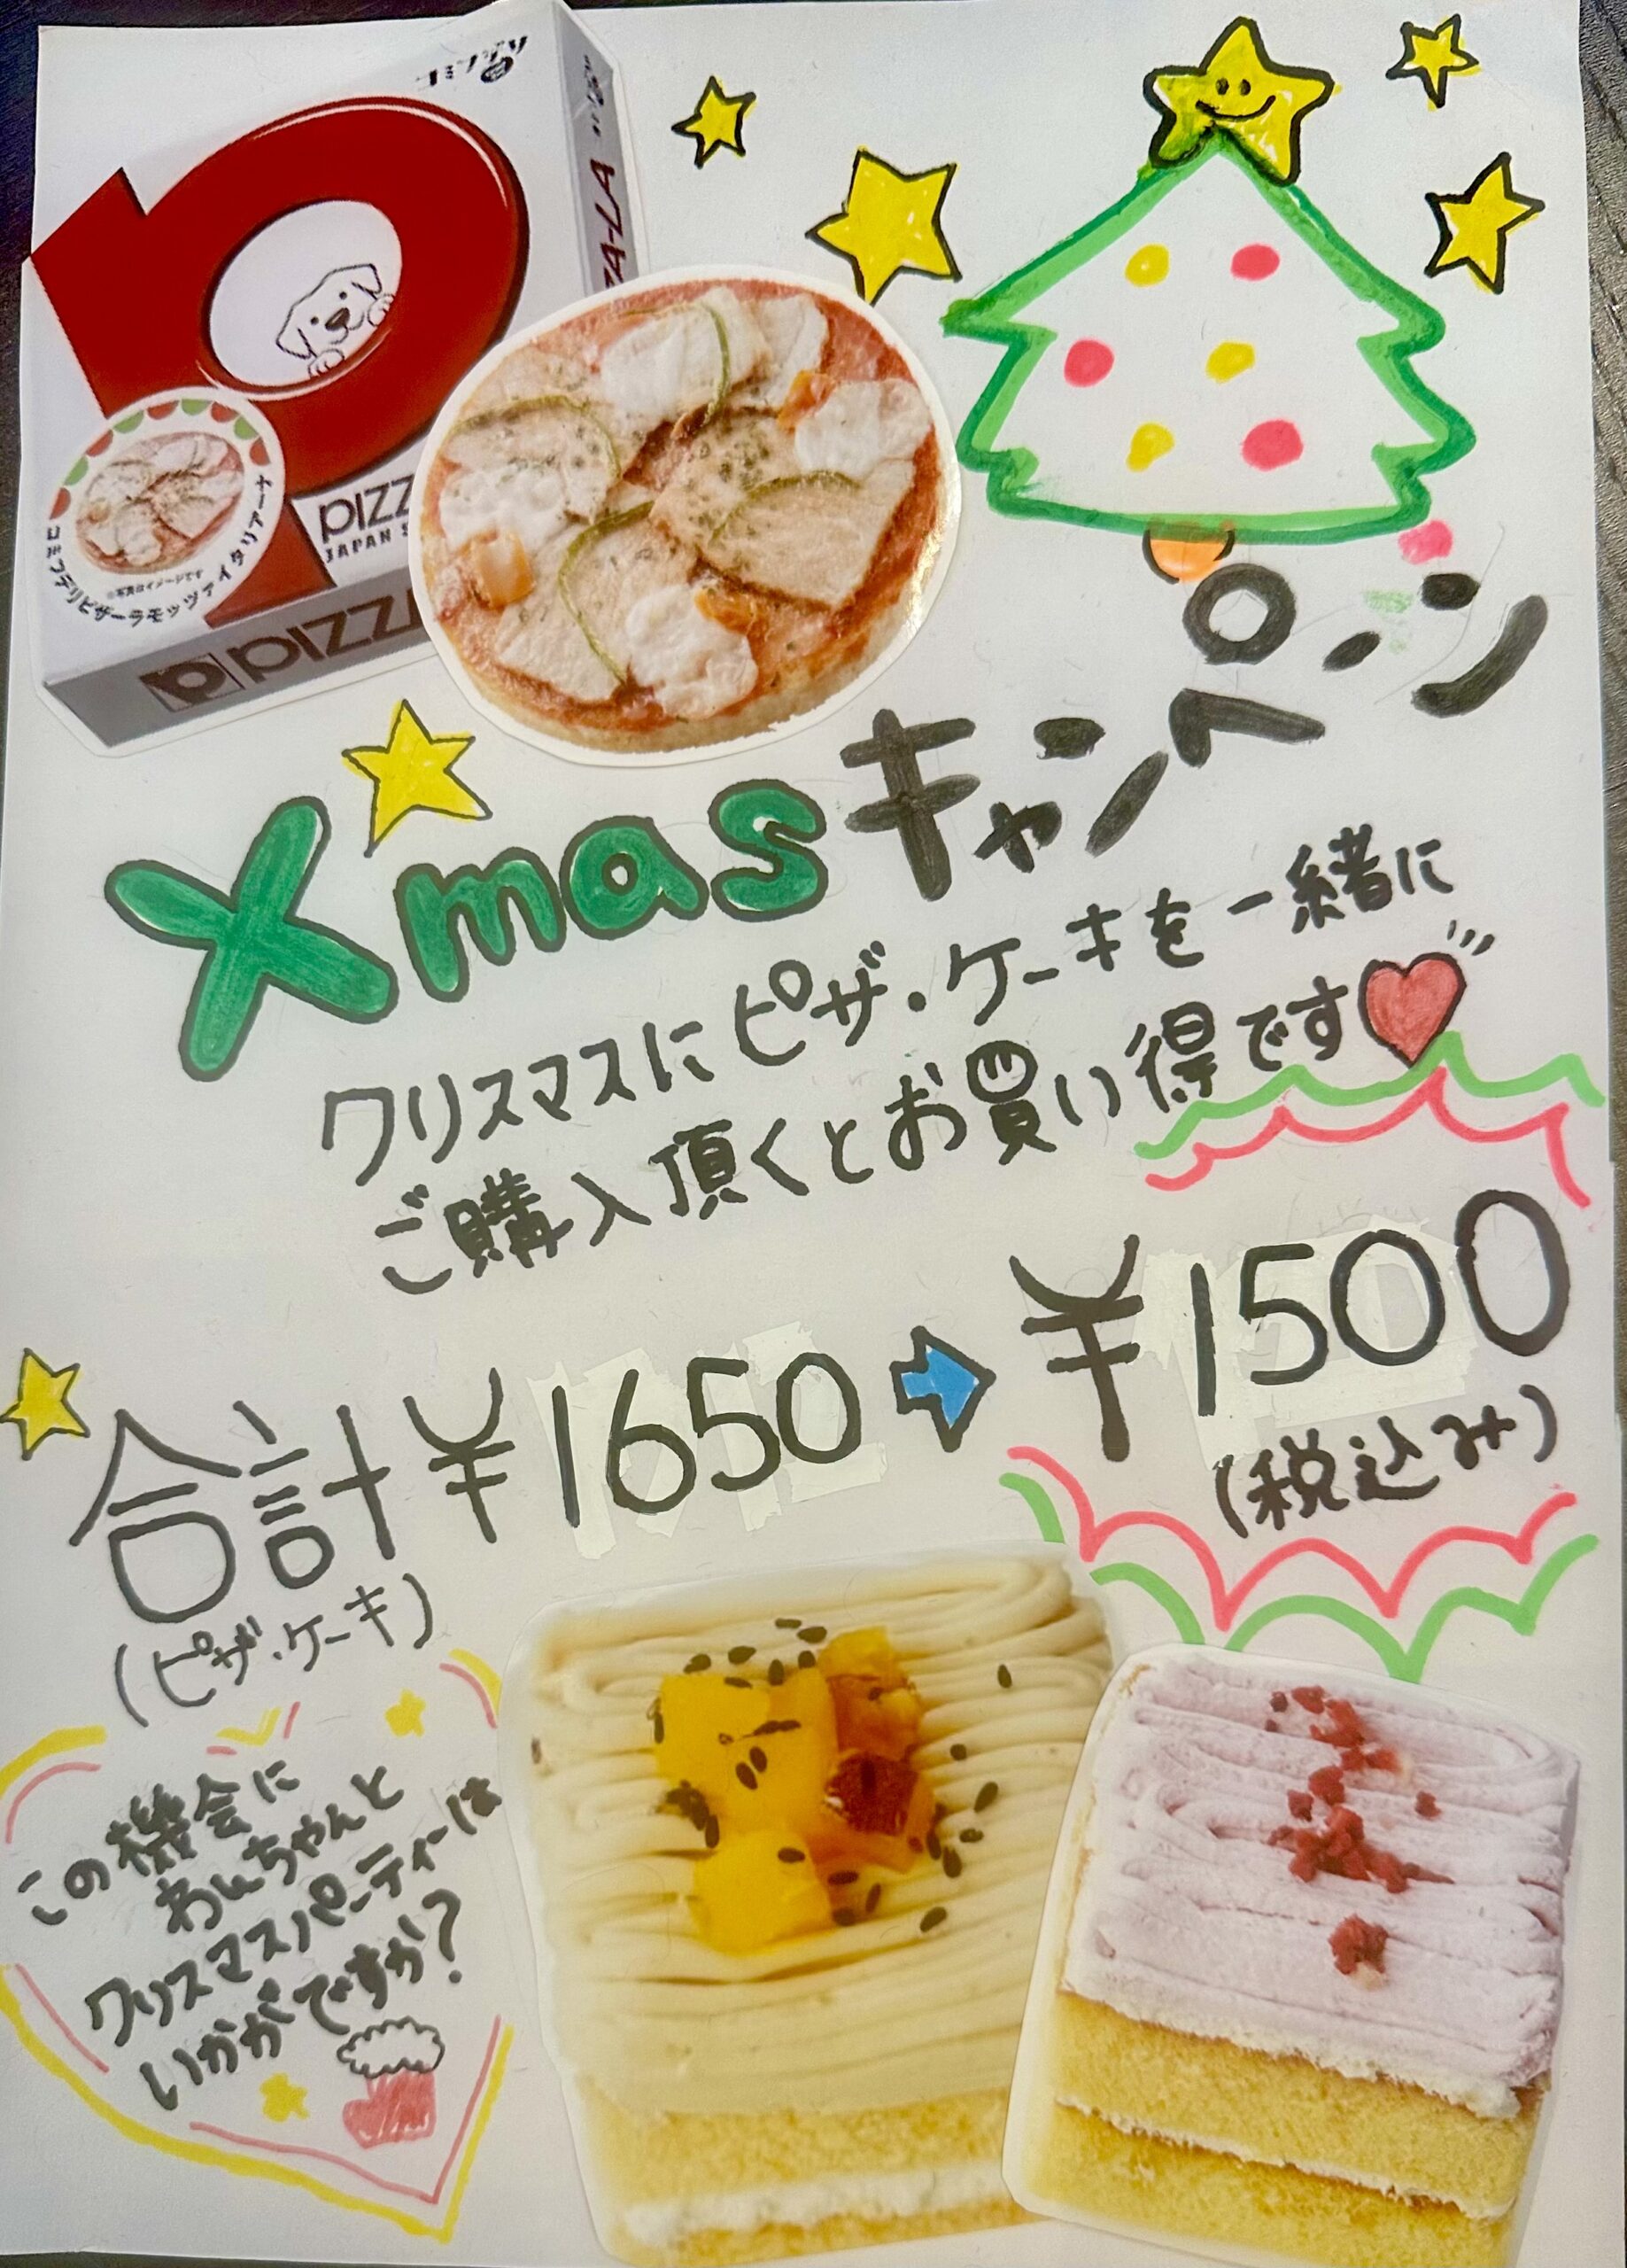 コミフデリ
PIZZA-LA
コミフデリピザーラモッツァイタリアーナ
※写真はイメージです
Xmasキャンペーン
クリスマスにピザ・ケーキを一緒に
ご購入頂くとお買い得です
合計¥1650 ¥1500
(税込み)
(ピザ・ケーキ)
この機会に
わんちゃんと
クリスマスパーティーは
いかがですか?